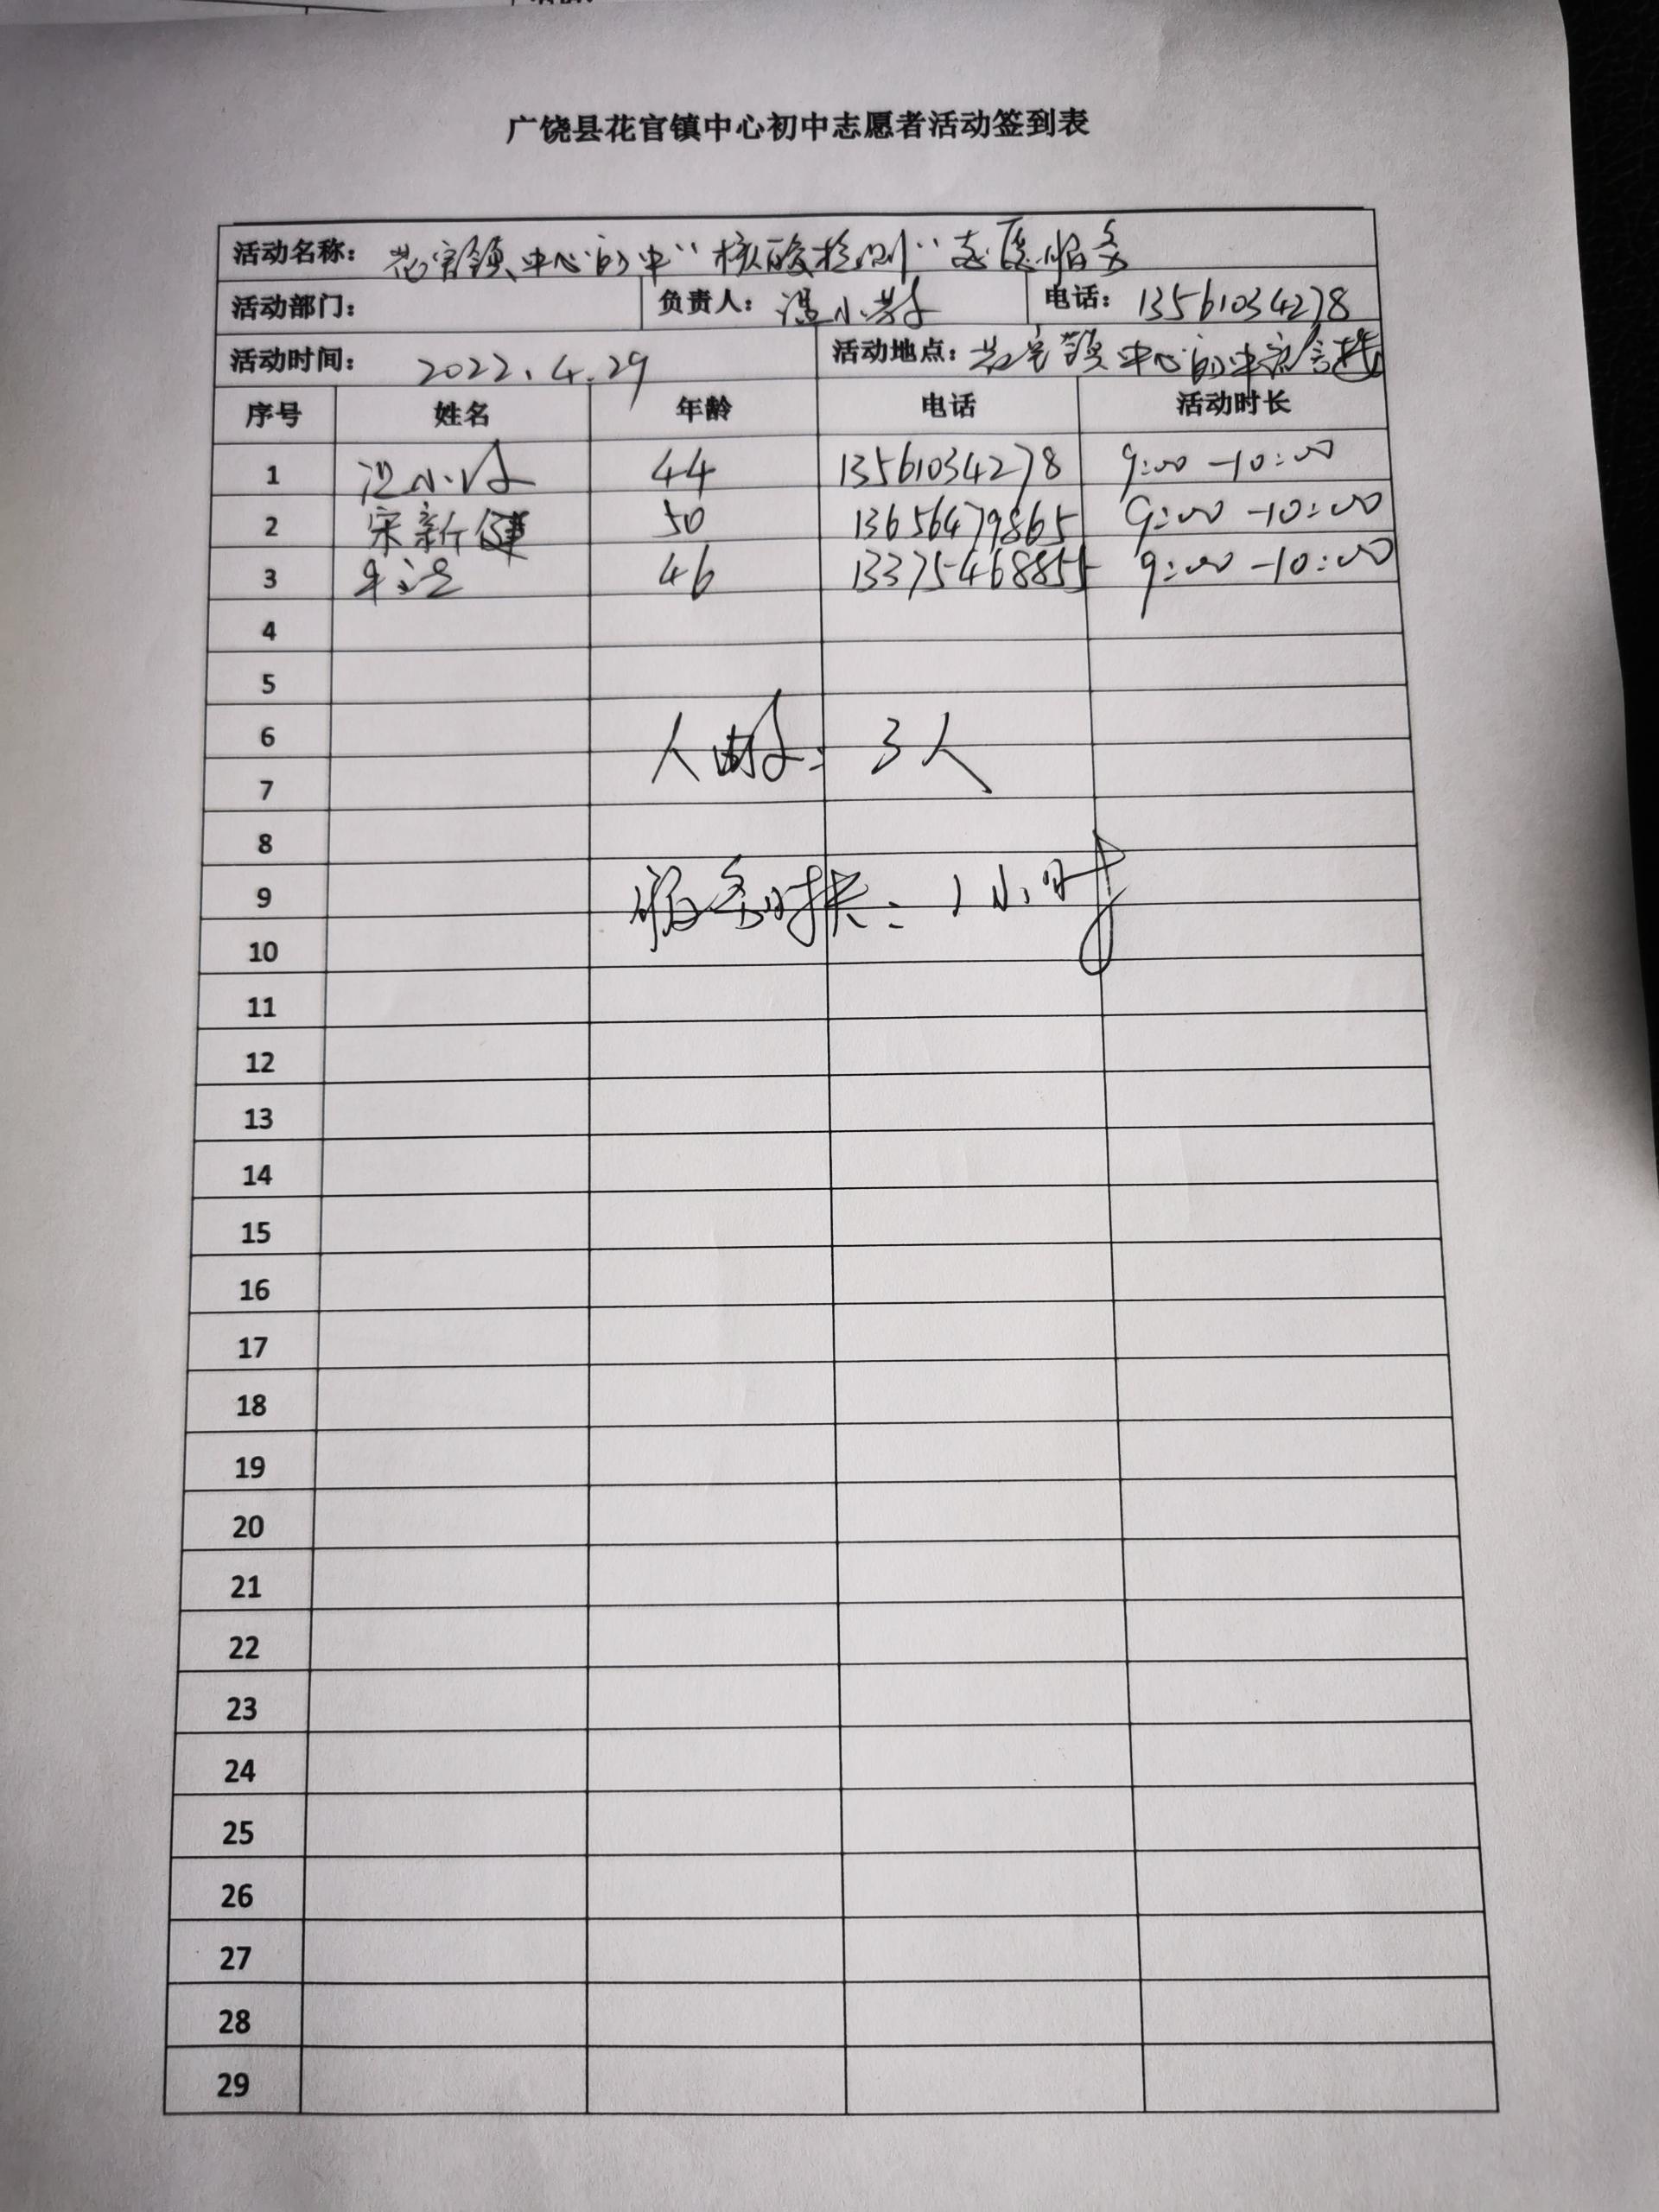 广饶县花官镇中心初中志愿者活动签到表
活动名称： 花官镇中心初中"核酸检测"志愿服务
活动部门： 负责人： 小 电话： 13561034278
活动时间： 2022.4.29 活动地点： 花官镇中心初中
序号 姓名 年龄 电话 活动时长
1 小 44 13561034278 9:00-10:00
2 宋新健 50 13656479865 9:00-10:00
3 46 13375468855 9:00-10:00
4
5
6
人数：3人
7
8
9
服务时长：1小时
10
11
12
13
14
15
16
17
18
19
20
21
22
23
24
25
26
27
28
29